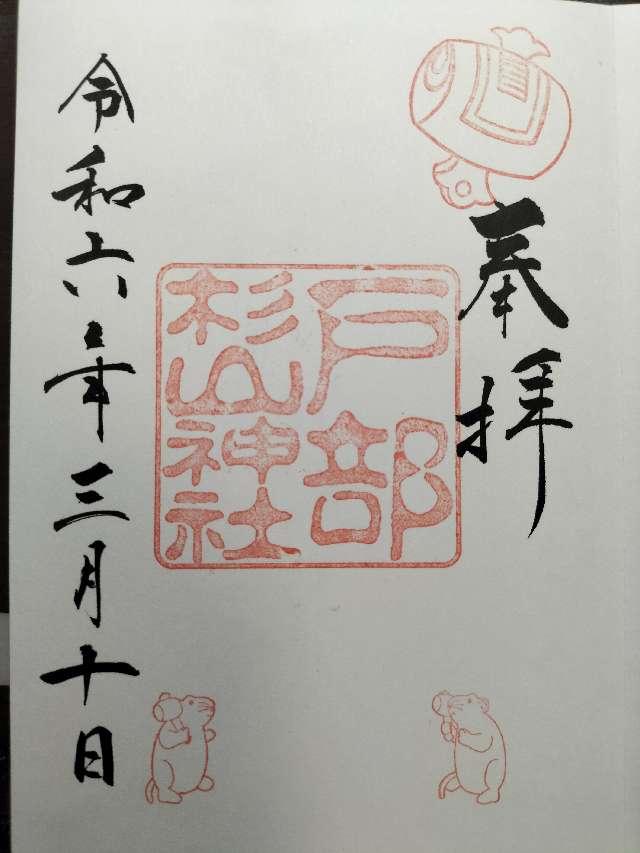 奉拝
戸部
杉山神社
令和六年三月十日